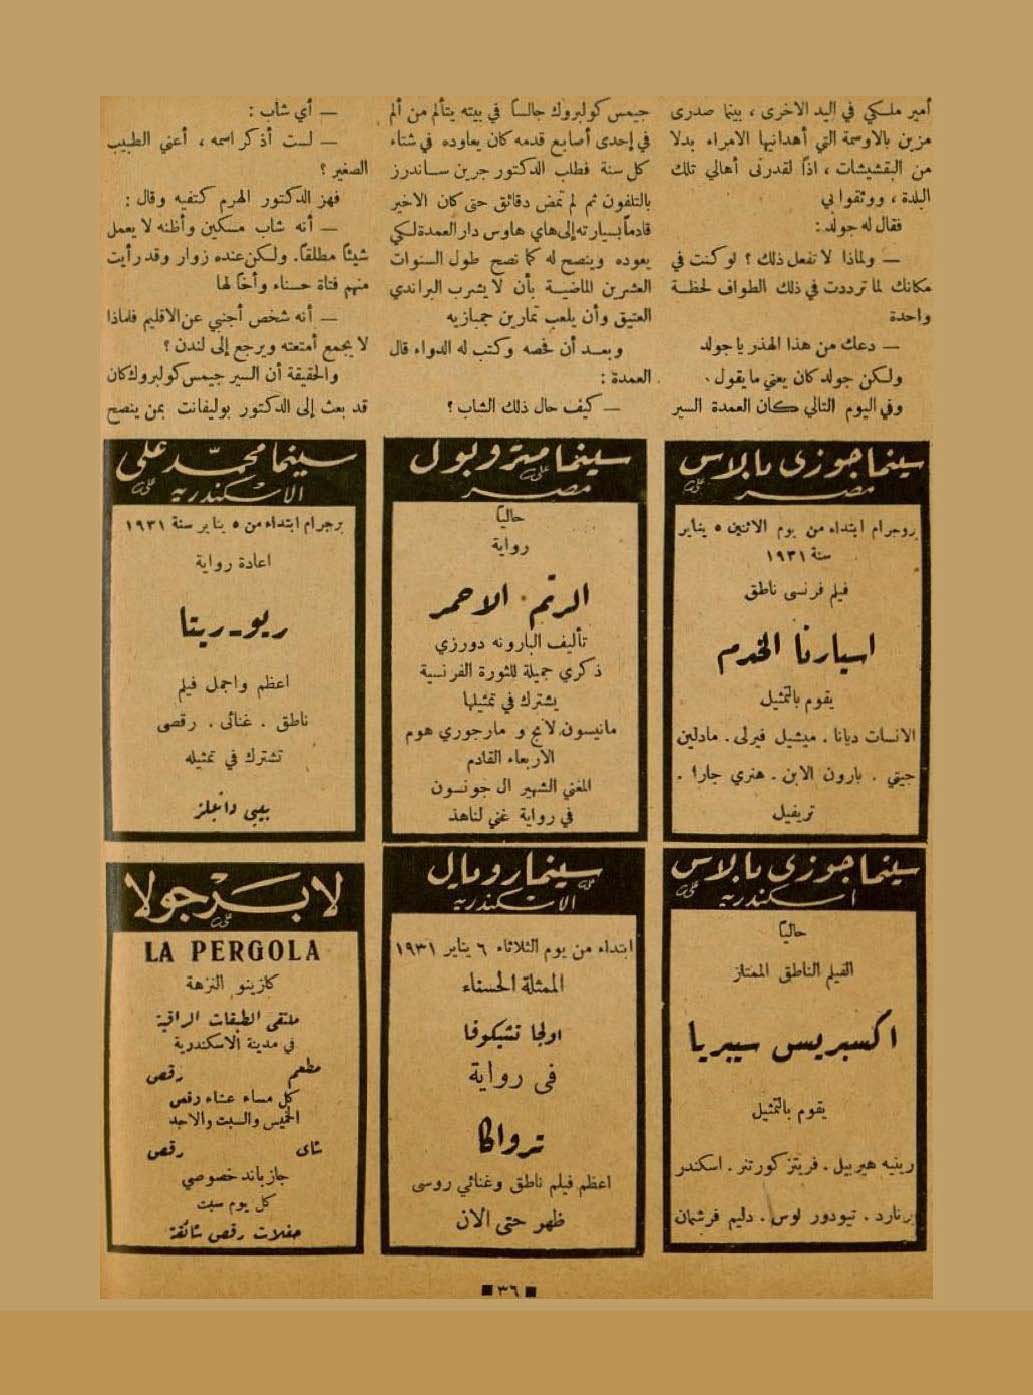 أمير ملكي في اليد الاخرى ، بينما صدرى
مزين بالاوسمة التي أهدانيها الامراء بدلا
من البقشيشات ، اذاً لقدرنى أهالي تلك
البلدة ، ووثقوا بي
فقال له جولد :
— ولماذا لا تفعل ذلك ؟ لو كنت في
مكانك لما ترددت في ذلك الطواف لحظة
واحدة
— دعك من هذا الهذر يا جولد
ولكن جولد كان يعني ما يقول .
وفي اليوم التالي كان العمدة السير
جيمس كولبروك جالساً في بيته يتألم من ألم
في إحدى أصابع قدمه كان يعاوده في شتاء
كل سنة فطلب الدكتور جرين ساندرز
بالتلفون ثم لم تمض دقائق حتى كان الاخير
قادماً بسيارته إلى هاي هاوس دار العمدة لكي
يعوده وينصح له كما نصح طول السنوات
العشرين الماضية بأن لا يشرب البراندي
العتيق وأن يلعب تمارين جمبازيه
وبعد أن فحصه وكتب له الدواء قال
العمدة :
— كيف حال ذلك الشاب ؟
— أي شاب :
— لست أذكر اسمه ، أعني الطبيب
الصغير ؟
فهز الدكتور الهرم كتفيه وقال :
— أنه شاب مسكين وأظنه لا يعمل
شيئاً مطلقاً . ولكن عنده زوار وقد رأيت
منهم فتاة حسناء وأخاً لها
— أنه شخص أجنبي عن الاقليم فلماذا
لا يجمع أمتعته ويرجع إلى لندن ؟
والحقيقة أن السير جيمس كولبروك كان
قد بعث إلى الدكتور بوليفانت بمن ينصح
سينما جوزى بالاس
مصر
بروجرام ابتداء من يوم الاثنين ٥ يناير
سنة ١٩٣١
فيلم فرنسى ناطق
اسيارنا الخدم
يقوم بالتمثيل
الانسات ديانا . ميشيل فيرلى . مادلين
جيتي . بارون الابن . هنري جارا .
تريفيل
سينما متروبول
مصر
حالياً
رواية
الرتم الاحمر
تأليف البارونه دورزي
ذكري جميلة للثورة الفرنسية
يشترك في تمثيلها
ماتيسون لانج و مارجوري هوم
الاربعاء القادم
المغني الشهير ال جونسون
في رواية غني لناهذ
سينما محمد على
الاسكندريه
برجرام ابتداء من ٥ يناير سنة ١٩٣١
اعادة رواية
ريو - ريتا
اعظم واجمل فيلم
ناطق . غنائى . رقصى
تشترك في تمثيله
بيبي دانيلز
سينما جوزى بالاس
اسكندريه
حالياً
الفيلم الناطق الممتاز
اكسبريس سيبريا
يقوم بالتمثيل
رينيه هيريبل . فريتز كورتنر . اسكندر
برنارد . تيودور لوس . دليم فرشمان
سينما رويال
الاسكندريه
ابتداء من يوم الثلاثاء ٦ يناير ١٩٣١
الممثلة الحسناء
اولجا تشيكوفا
فى رواية
ترواكا
اعظم فيلم ناطق وغنائي روسى
ظهر حتى الان
لا برجولا
LA PERGOLA
كازينو النزهة
ملتقى الطبقات الراقية
في مدينة الاسكندرية
مطعم رقص
كل مساء عشاء رقص
الخميس والسبت والاحد
شاى رقص
جازباند خصوصي
كل يوم سبت
حفلات رقص شائقة
٣٦